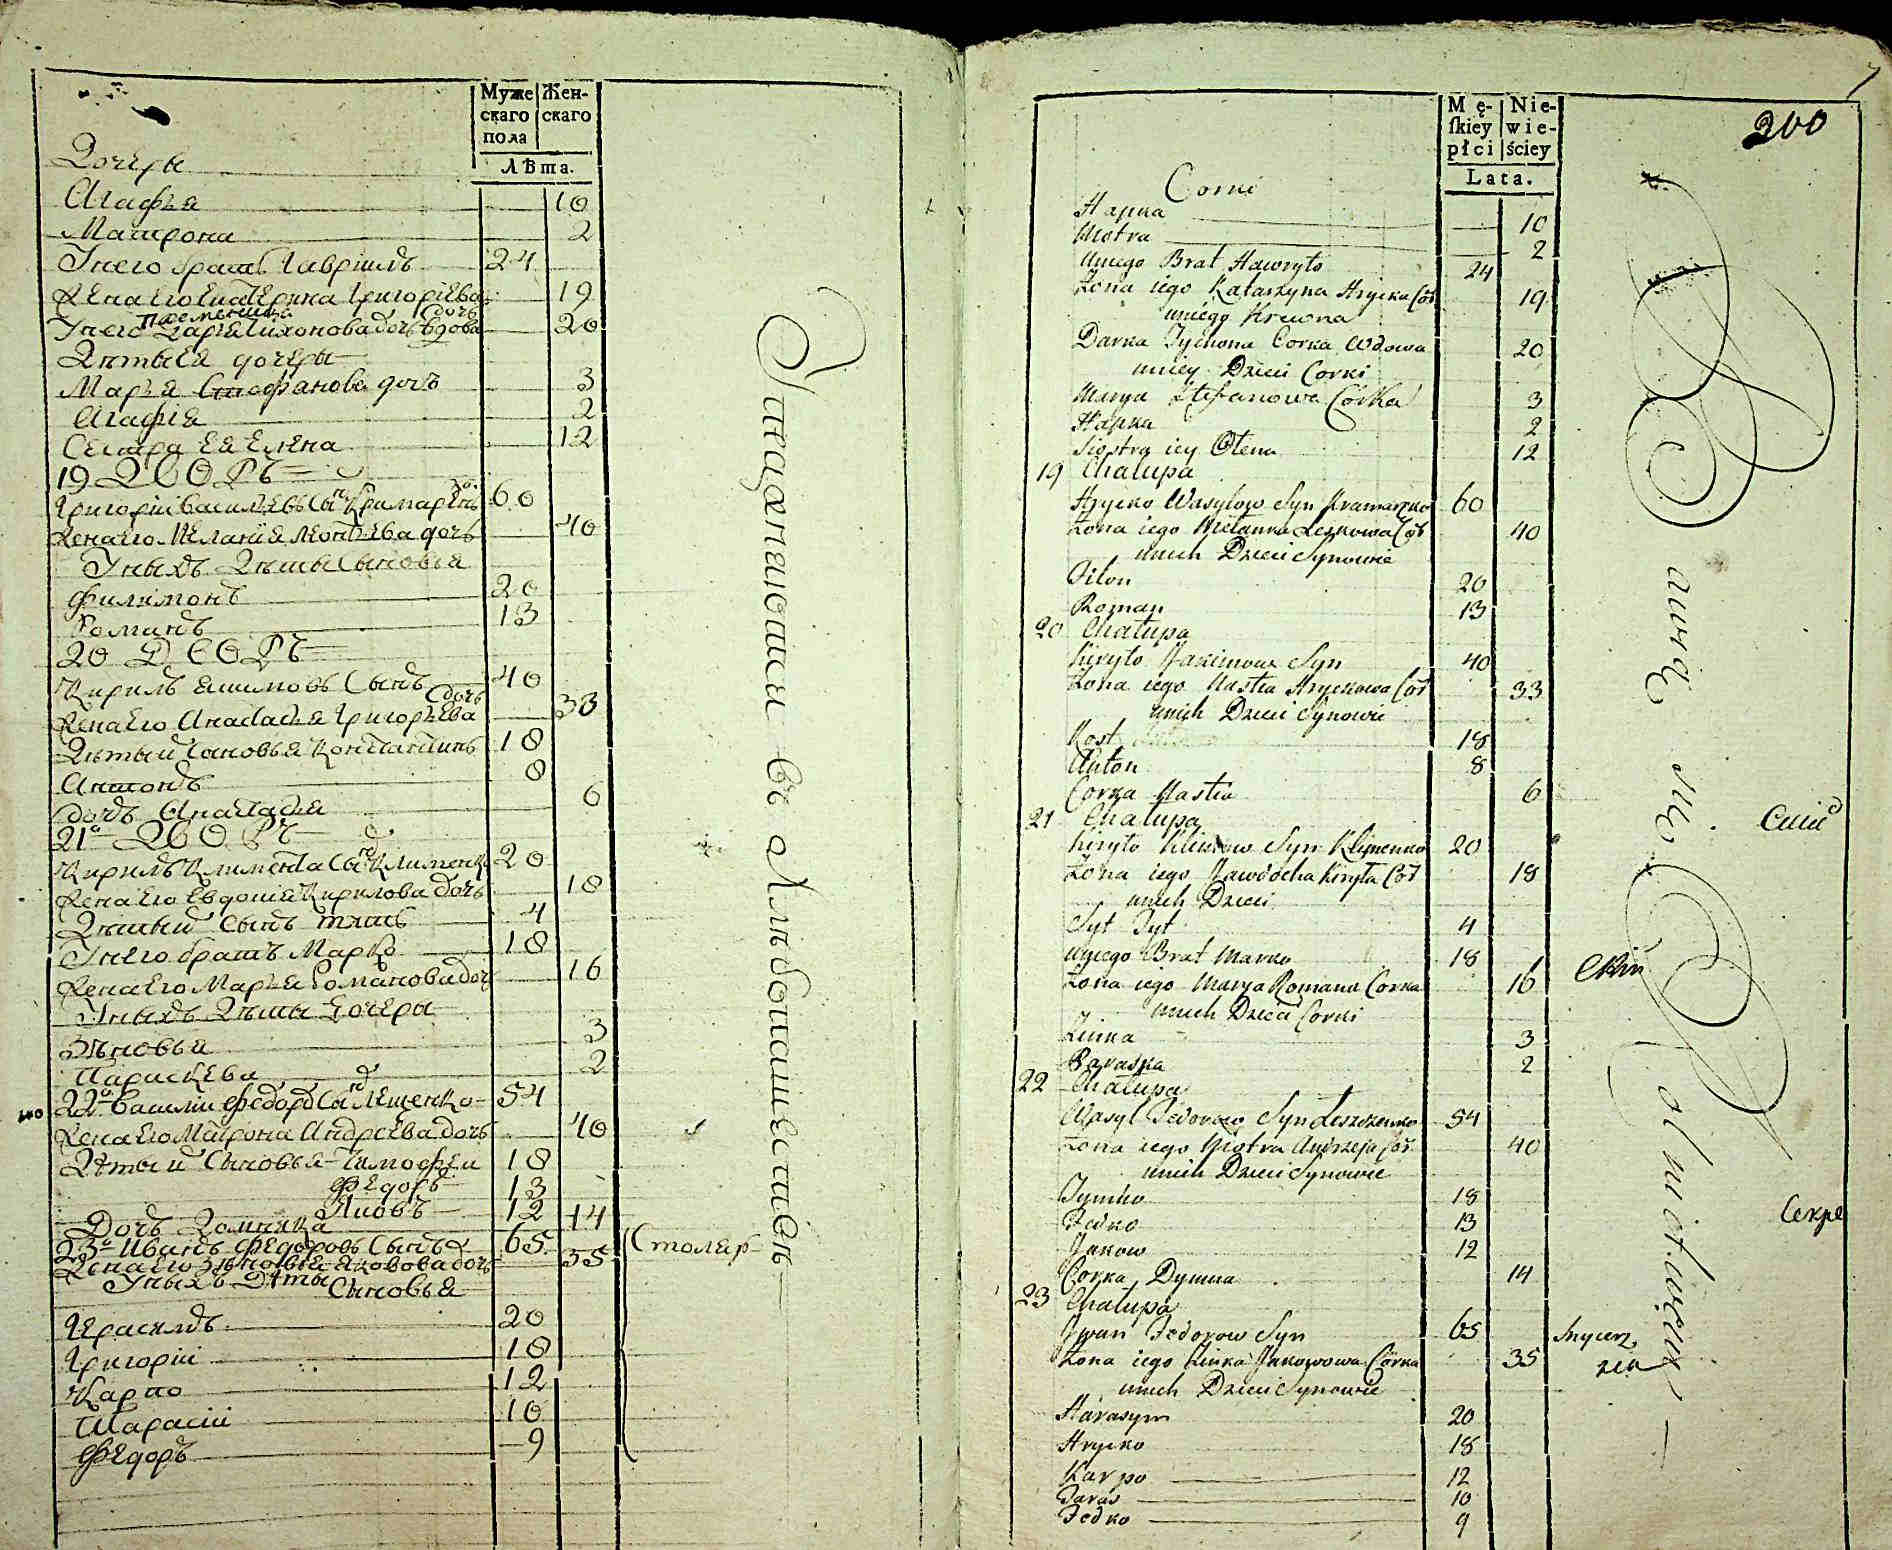 Муже
скаго
пола
Жен-
скаго
Лѣта.
Дочеры
Агафья 10
Матрона 2
Унего братъ Гаврiилъ 24
Жена его Екатерина Григорiева дочь 19
Унего племенница Дарья Тихонова дочь вдова 20
Дѣтыея дочеры
Марья Стефанова дочь 3
Агафiя 2
Сестра ея Елена 12
19 ДВОРЪ
Григорiй Васильевъ Сынъ Крамаренко 60
Жена его Меланiя Леонтьева дочь 40
Унихъ Дѣты Сыновья
Филимонъ 20
Романъ 13
20 ДВОРЪ
Кирилъ Якимовъ Сынъ 40
Жена его Анастасья Григорьева дочь 33
Дѣтый Сыновья Константинъ 18
Антонъ 8
Дочь Анастасья 6
21 ДВОРЪ
Кирилъ Климента Сынъ Клименко 20
Жена его Евдокiя Кирилова дочь 18
Дѣтый Сынъ 4
Унего братъ Марко 18
Жена его Марья Романова дочь 16
Унихъ Дѣты Дочеры
Зѣновья 3
Параскева 2
22 Василiй Федоровъ Сынъ Лещенко 54
Жена его Матрона Андреева дочь 40
Дѣтый Сыновья Тимофей 18
Федоръ 13
Яковъ 12
Дочь Домникiя 14
23 Иванъ Федоровъ Сынъ 65 Столяр
Жена его Зѣновья Яковова дочь 35
Унихъ Дѣты Сыновья
Герасимъ 20
Григорiй 18
Карпо 12
Тарасiй 10
Федоръ 9
Mę-
ſkiey
płci
Nie-
wie-
ściey
Lata.
200
Corki
Hapka 10
Motra 2
uniego Brat Hawryło 24
Zona iego Katarzyna Hrycka Cór 19
uniego Krewna
Darka Tychona Corka Wdowa 20
uniey Dzieci Corki
Marya Stefanowa Córka 3
Hapka 2
Siostra iey Olena 12
19 Chałupa
Hrycko Wasylow Syn Kramarenko 60
Zona iego Mełanka Leskowa Cór 40
unich Dzieci Synowie
Pilon 20
Roman 13
20 Chałupa
Kiryło Jakimow Syn 40
Zona iego Nastia Hryckowa Cór 33
unich Dzieci Synowie
Kost 18
Anton 8
Corka Nastia 6
21 Chałupa
Kiryło Klimow Syn Klimenko 20
Zona iego Jawdocha Kiryła Cór 18
unich Dzieci
Syt Tyt 4
uniego Brat Marko 18
Zona iego Marya Romana Corka 16
unich Dzieci Corki
Zinka 3
Paraska 2
22 Chałupa
Wasyl Fedorow Syn Leszczenko 54
Zona iego Motra Andrzeja Cór 40
unich Dzieci Synowie
Tymko 18
Fedko 13
Jakow 12
Corka Dymna 14
23 Chałupa
Jwan Fedorow Syn 65
Zona iego Zinka Jakowowa Córka 35
unich Dzieci Synowie
Harasym 20
Hrycko 18
Karpo 12
Taras 10
Fedko 9